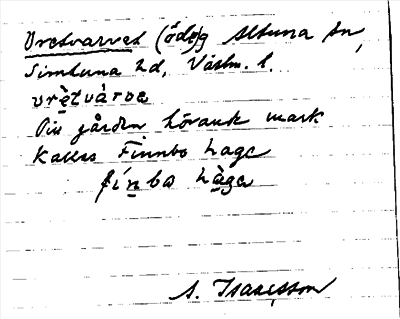 Vretvarvet (ödelg Altuna sn,
Simtuna hd, Västm. l.
vrètvàrvə
Till gården hörande mark
kallas Finnbo hage
fínbo hàgə
A. Isaacsson